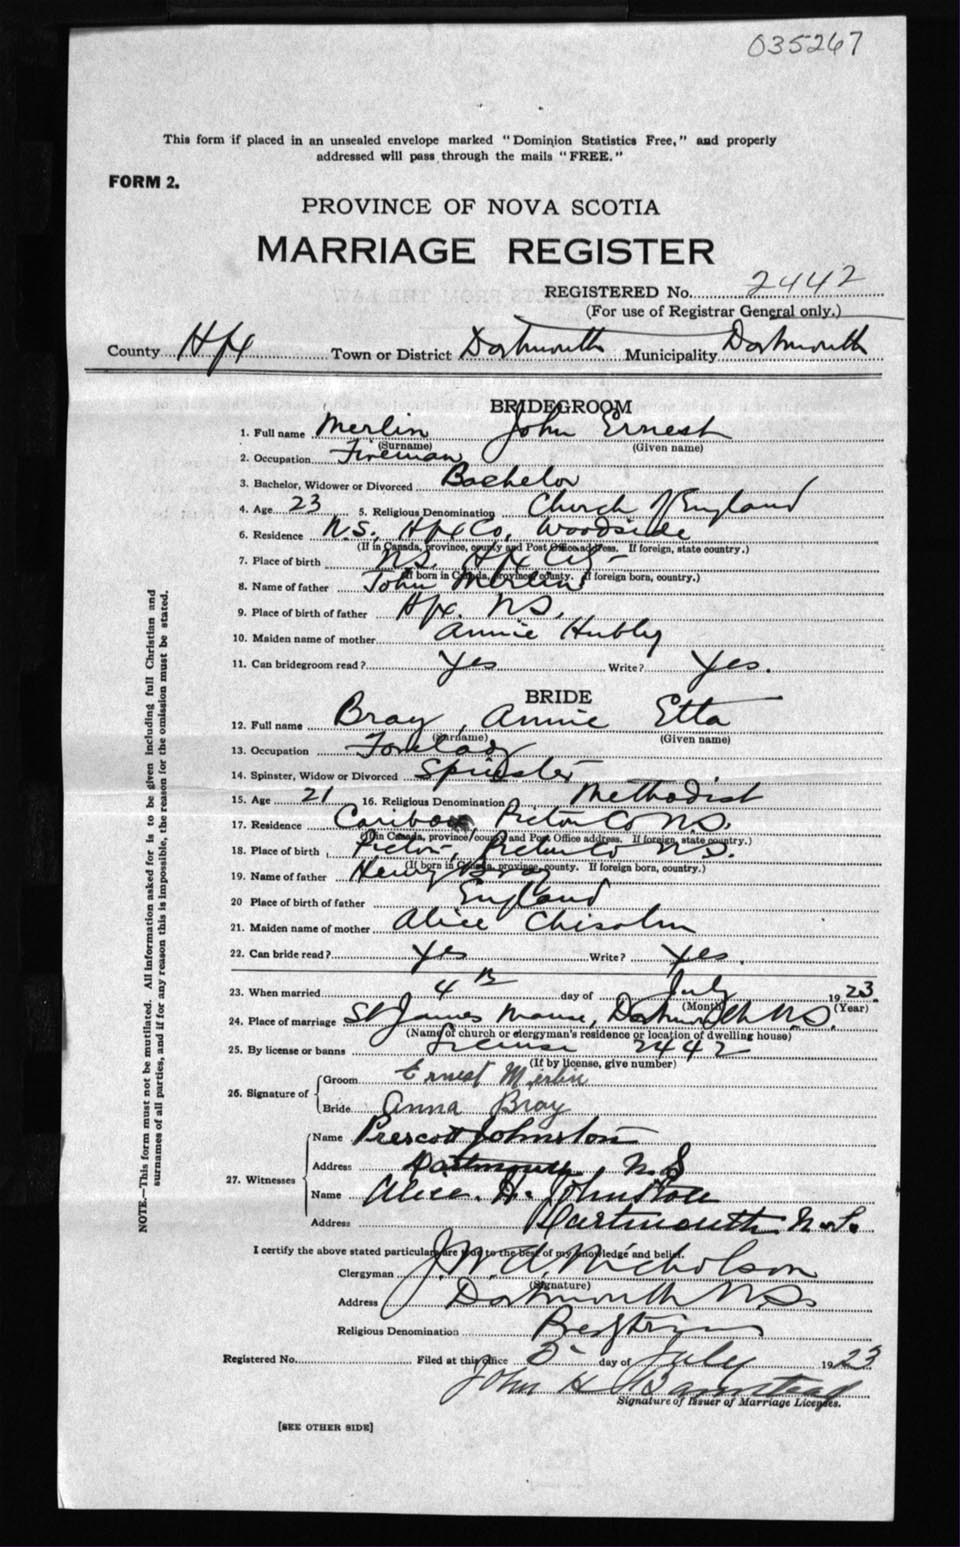 035267
This form if placed in an unsealed envelope marked "Dominion Statistics Free," and properly
addressed will pass through the mails "FREE."
FORM 2.
PROVINCE OF NOVA SCOTIA
MARRIAGE REGISTER
REGISTERED No. 2442
(For use of Registrar General only.)
County Hfx Town or District Dartmouth Municipality Dartmouth
BRIDEGROOM
1. Full name Merlin John Ernest
(Surname) (Given name)
2. Occupation Fireman
3. Bachelor, Widower or Divorced Bachelor
4. Age 23 5. Religious Denomination Church of England
6. Residence N.S. Hfx Co, Woodside
(If in Canada, province, county and Post Office address. If foreign, state country.)
7. Place of birth N.S. Hfx City
(If born in Canada, province, county. If foreign born, country.)
8. Name of father John Merlin
9. Place of birth of father Hfx. N.S.
10. Maiden name of mother Annie Hubly
11. Can bridegroom read? Yes Write? Yes.
BRIDE
12. Full name Bray, Annie Etta
(Surname) (Given name)
13. Occupation Forelady
14. Spinster, Widow or Divorced Spinster
15. Age 21 16. Religious Denomination Methodist
17. Residence Caribou Pictou Co N.S.
(If in Canada, province/county and Post Office address. If foreign, state country.)
18. Place of birth Pictou, Pictou Co N.S.
(If born in Canada, province, county. If foreign born, country.)
19. Name of father Henry Bray
20 Place of birth of father England
21. Maiden name of mother Alice Chisolm
22. Can bride read? Yes Write? Yes.
23. When married 4th day of July 1923.
(Month) (Year)
24. Place of marriage St James Manse, Dartmouth N.S.
(Name of church or clergyman's residence or location of dwelling house)
25. By license or banns License 2442
(If by license, give number)
26. Signature of Groom Ernest Merlin
Bride Anna Bray
27. Witnesses Name Prescott Johnston
Address Dartmouth, N.S
Name Alice. H. Johnston
Address Dartmouth N.S.
I certify the above stated particulars are true to the best of my knowledge and belief.
Clergyman J. W. A. Nicholson
(Signature)
Address Dartmouth N.S.
Religious Denomination
Registered No. Filed at this office 5 day of July 1923
John H
Signature of Issuer of Marriage Licenses.
[SEE OTHER SIDE]
NOTE.—This form must not be mutilated. All information asked for is to be given including full Christian and
surnames of all parties, and if for any reason this is impossible, the reason for the omission must be stated.